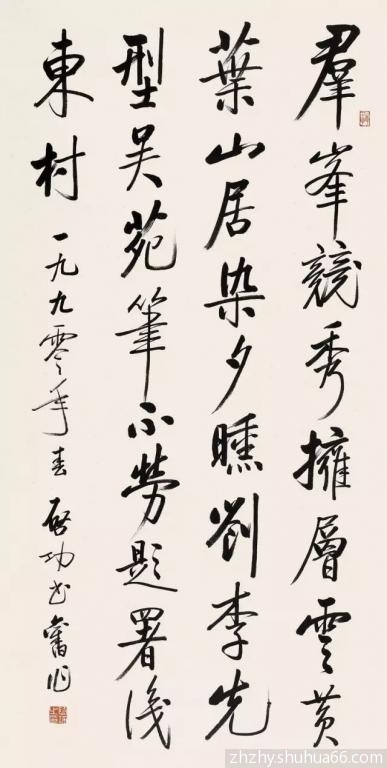 羣峯競秀擁層雲黃
葉山居染夕曛劉李先
型吴苑筆不勞題署淺
東村 一九九零年春 啓功書舊作
zhzhy.shuhua66.com